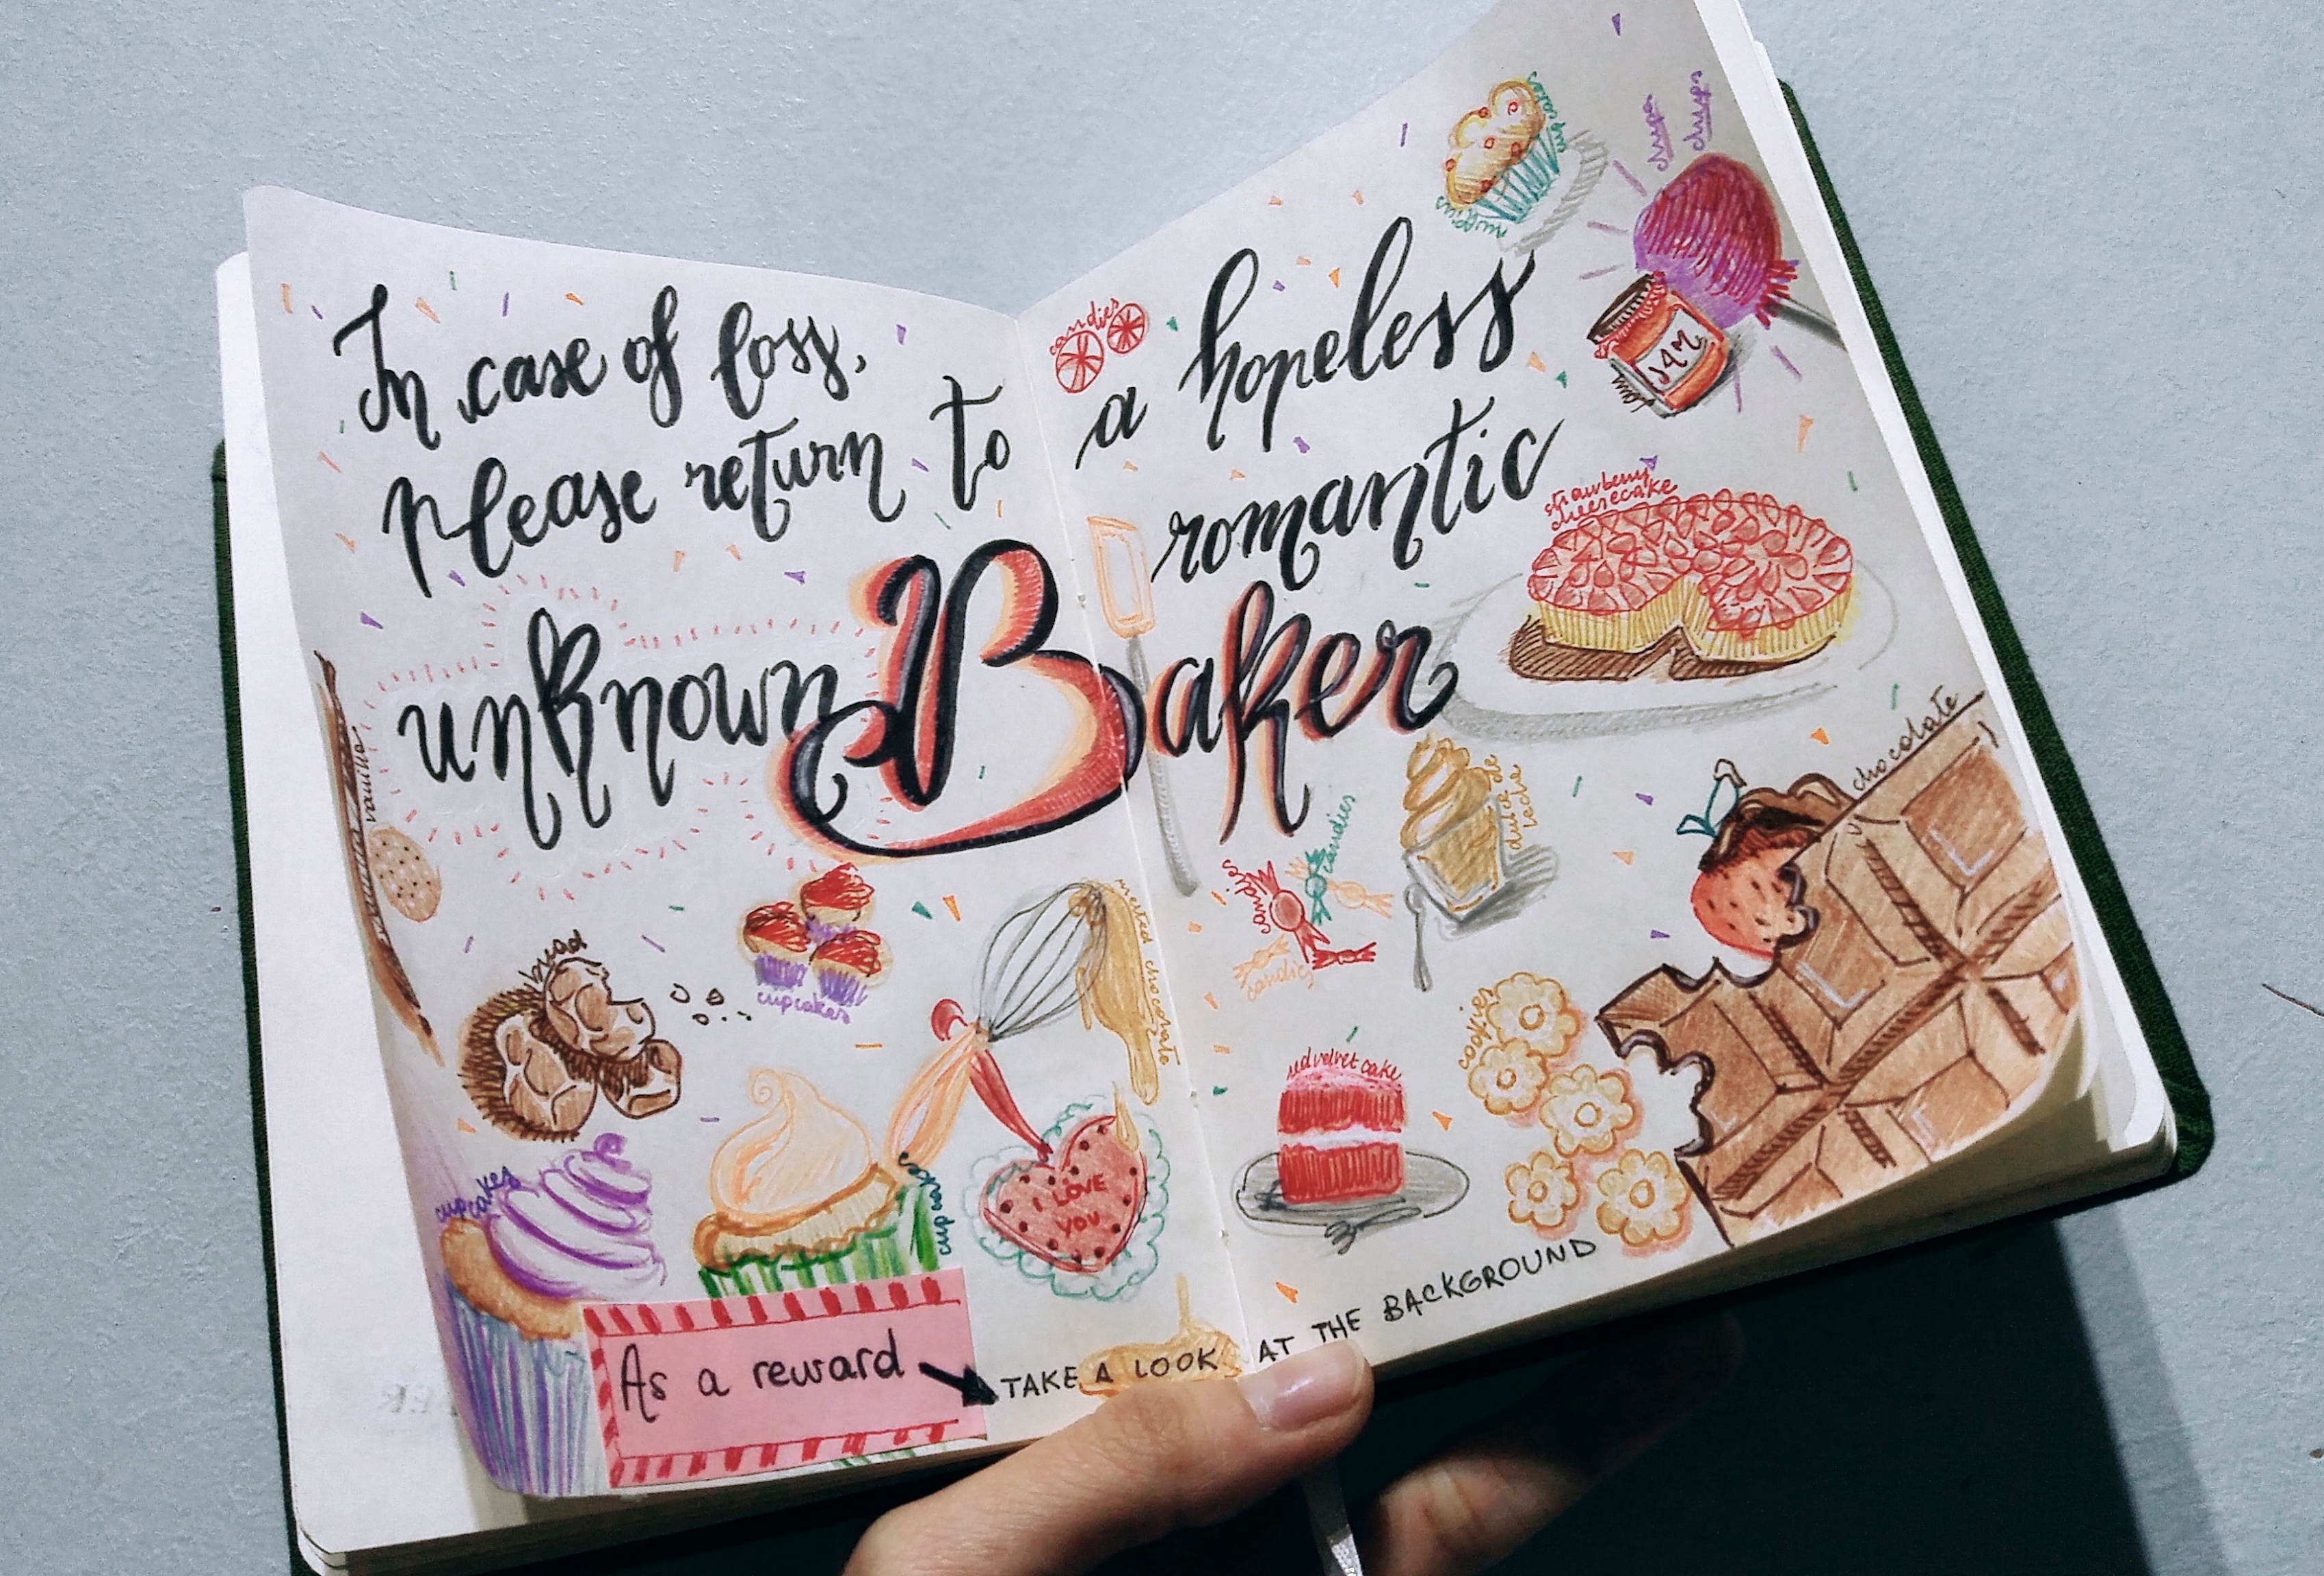 In case of loss,
Please return to
unknown Baker
a hopeless
romantic
candies
muffins
chupa
chups
JAM
strawberry
cheesecake
vanilla
bread
cupcakes
melted chocolate
candies
candies
candies
dulce de
leche
chocolate
cupcakes
cupcakes
I LOVE
YOU
red velvet cake
cookies
As a reward
TAKE A LOOK AT THE BACKGROUND